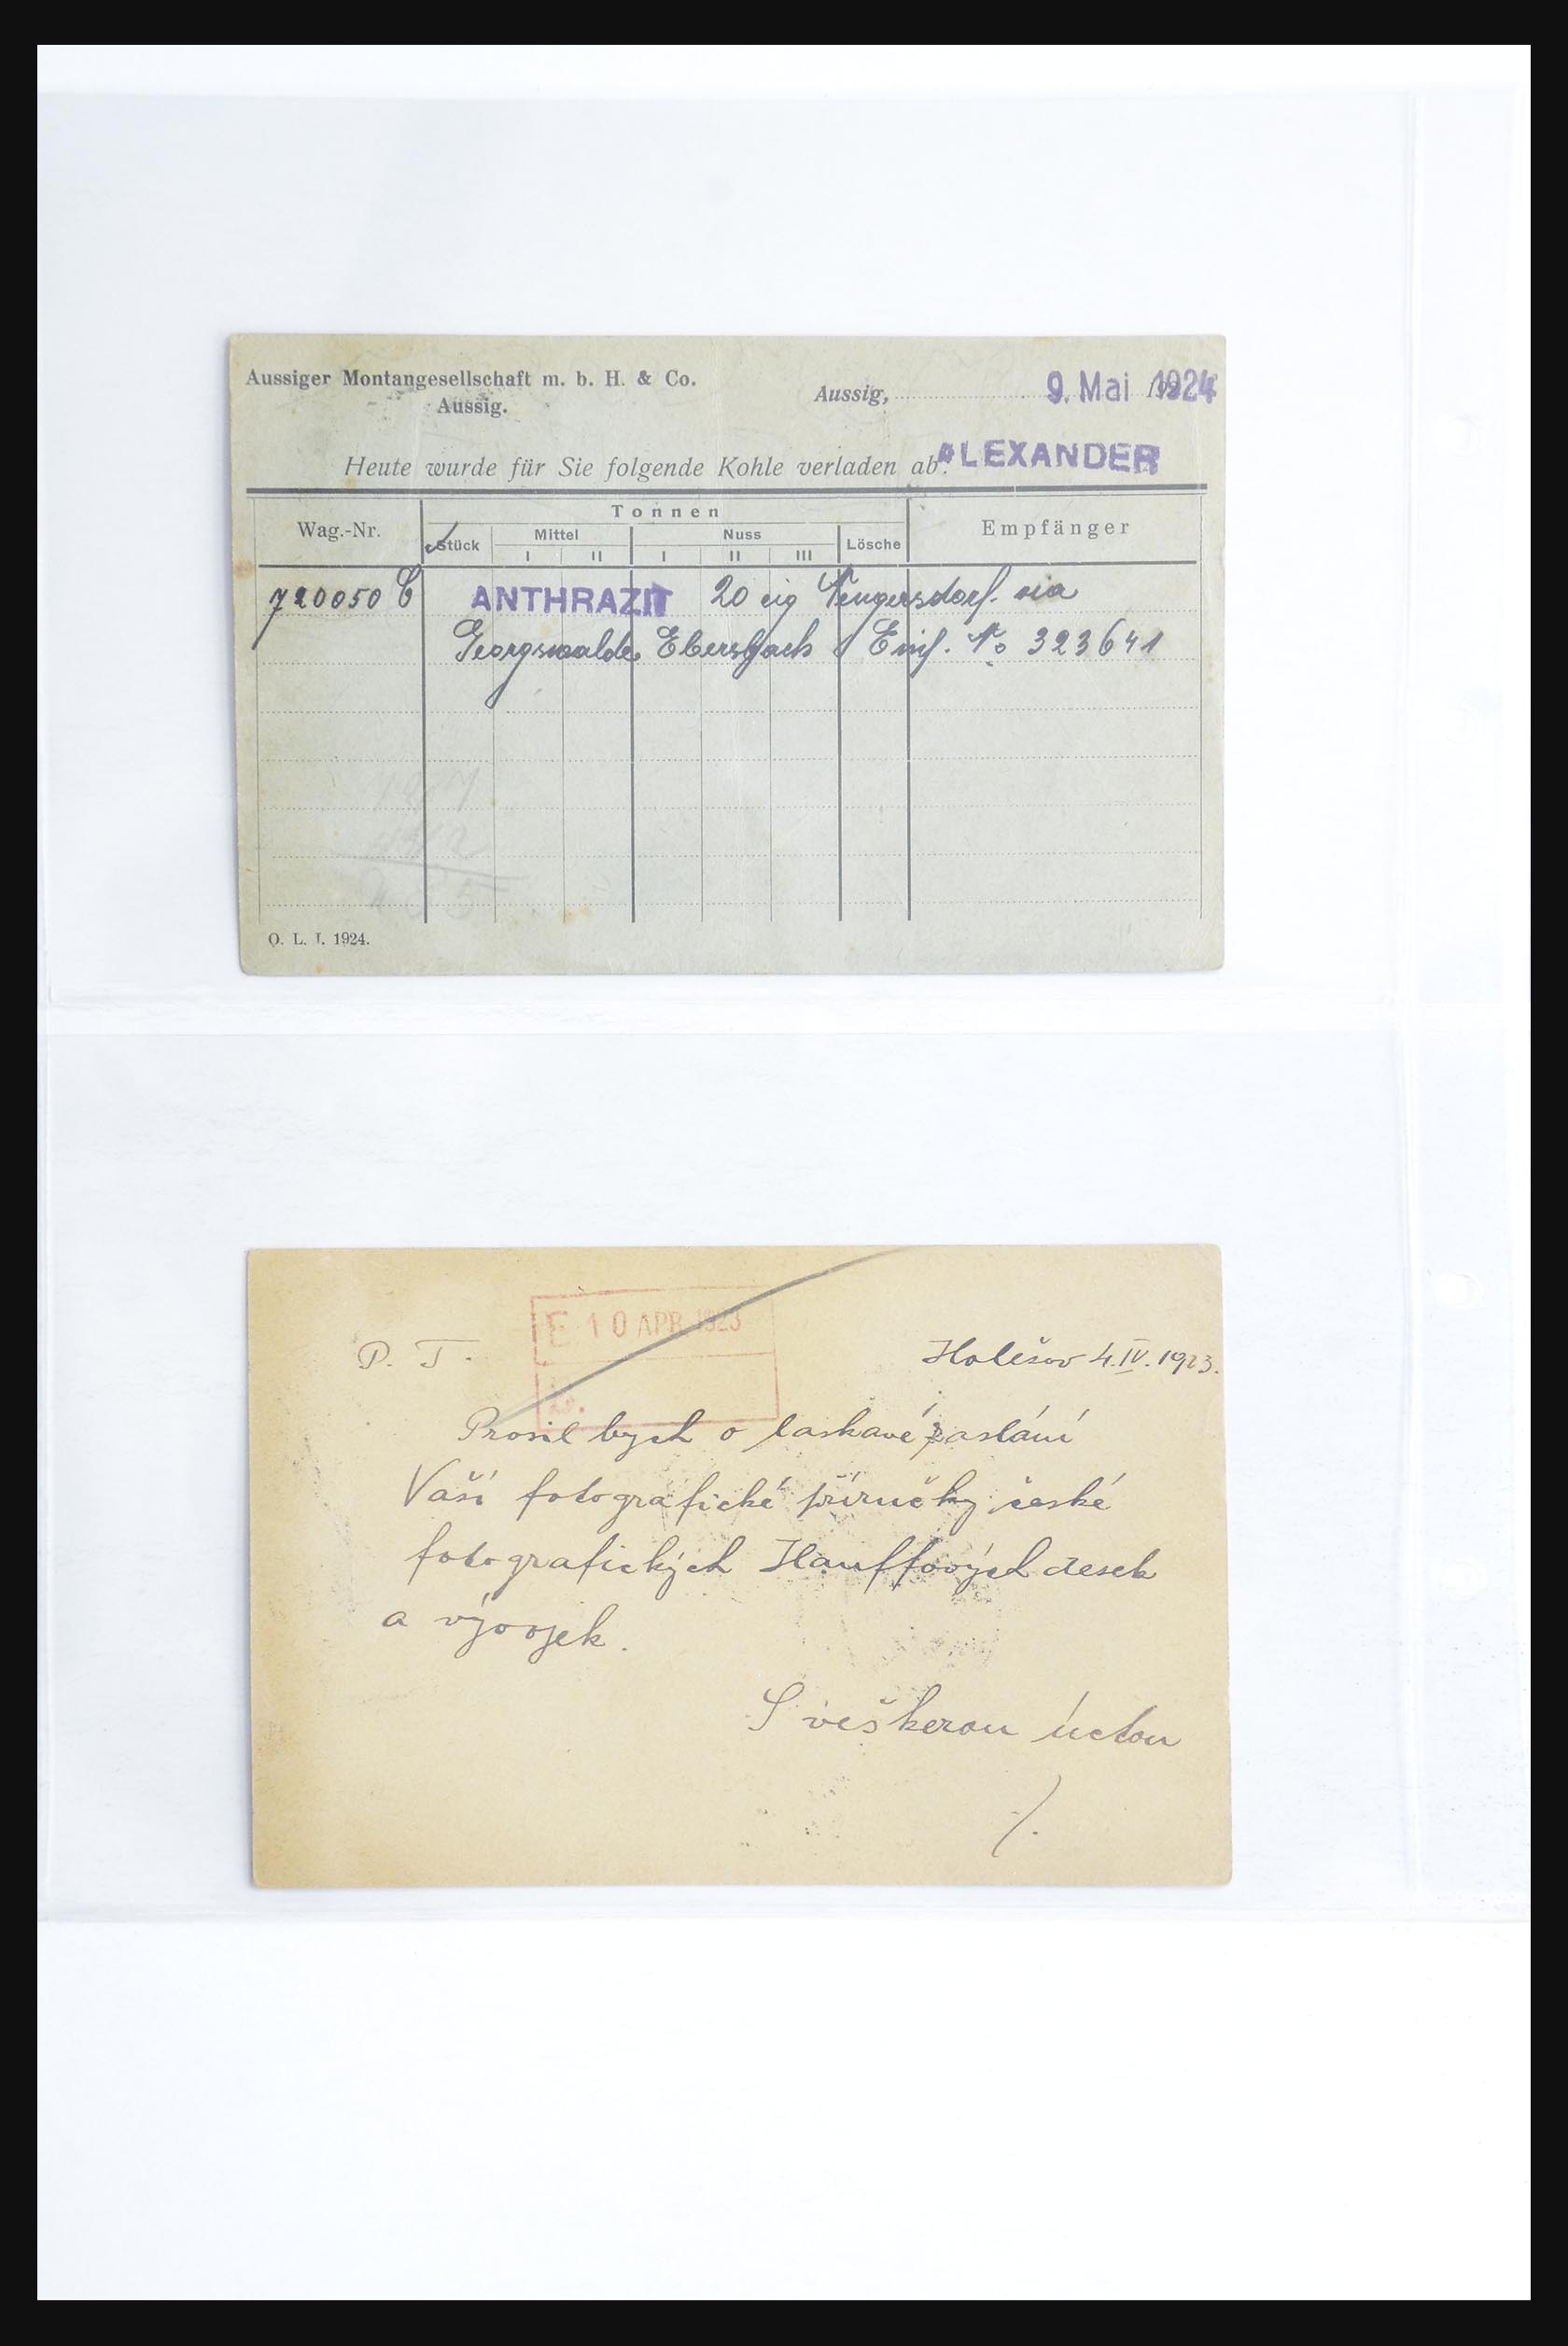 Aussiger Montangesellschaft m. b. H. & Co.
Aussig.
Aussig, 9. Mai 1924
Heute wurde für Sie folgende Kohle verladen ab: ALEXANDER
Tonnen
Wag.-Nr. Stück Mittel Nuss Lösche Empfänger
I II I II III
720050 C ANTHRAZIT 20 via
Georgswalde Ebersbach No 323641
O. L. I. 1924.
E 10 APR 1923
P. T. Holešov 4.IV.1923.
Prosil bych o laskavé zaslání
Vaší fotografické příručky české
fotografických Hauffových desek
a vývojek.
S veškerou úctou